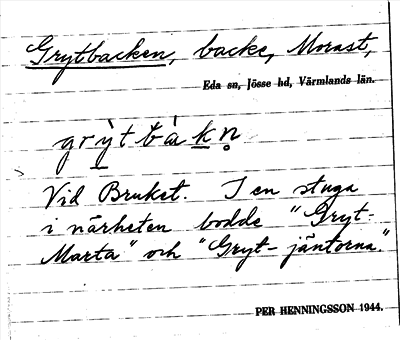 Grytbacken, backe, Morast,
Eda sn, Jösse hd, Värmlands län.
grỳtbàkn̥
Vid Bruket. I en stuga
i närheten bodde "Gryt-
Marta" och "Gryt-jäntorna."
PER HENNINGSSON 1944.